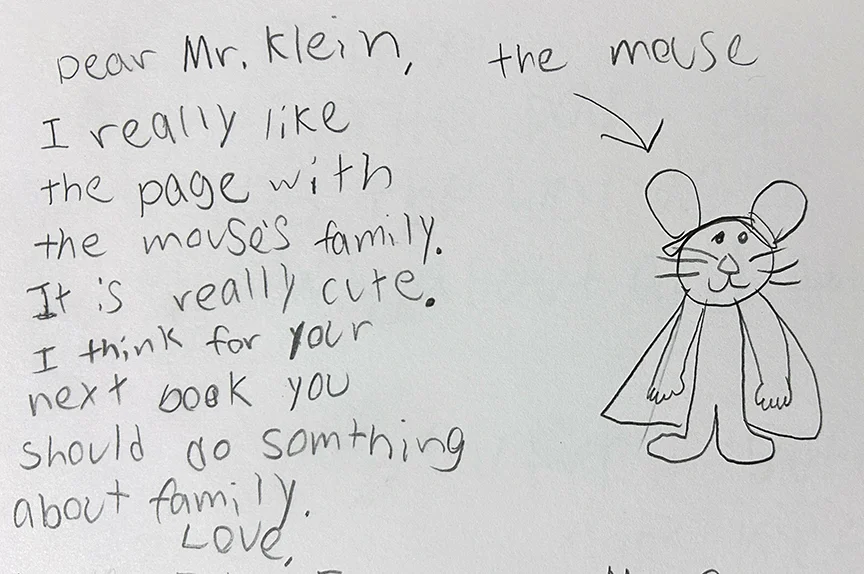 Dear Mr. Klein,
the mouse
I really like
the page with
the mouse's family.
It is really cute.
I think for your
next book you
should do somthing
about family.
Love,